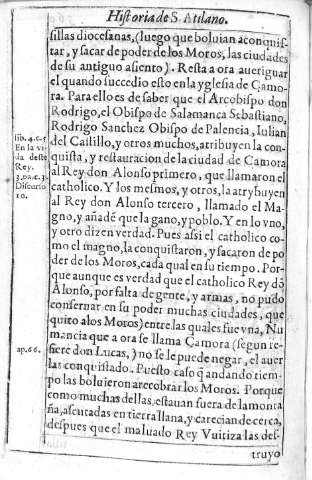 Historia de S. Atilano.
sillas diocesanas, (luego que boluian a conquis-
tar, y sacar de poder de los Moros, las ciudades
de su antiguo asiento). Resta aora aueriguar
el quando succedio esto en la yglesia de Çamo-
ra. Para ello es de saber que el Arcobispo don
Rodrigo, el Obispo de Salamanca Sebastiano,
Rodrigo Sanchez Obispo de Palencia, Iulian
del Castillo, y otros muchos, atribuyen la con-
quista, y restauracion de la ciudad de Çamora
al Rey don Alonso primero, que llamaron el
catholico. Y los mesmos, y otros, la atrybuyen
al Rey don Alonso tercero, llamado el Ma-
gno, y añadẽ que la gano, y poblo. Y en lo vno,
y otro dizen verdad. Pues assi el catholico co-
mo el magno, la conquistaron, y sacaron de po
der de los Moros, cada qual en su tiempo. Por-
que aunque es verdad que el catholico Rey dõ
Alonso, por falta de gente, y armas, no pudo
conseruar en su poder muchas ciudades, que
quito a los Moros) entre las quales fue vna, Nu
mancia que a ora se llama Çamora (segun re-
fiere don Lucas,) no se le puede negar, el auer
las conquistado. Puesto caso q̃ andando tiem-
po las boluieron a recobrar los Moros. Porque
como muchas dellas, estauan fuera de la monta
ña, asentadas en tierra llana, y carecian de cerca,
despues que el maluado Rey Vuitiza las des-
truyo
lib. 4. c. 5
En la vi
da deste
Rey.
3. pa. c. 3.
Discurso
10.
ap. 66.